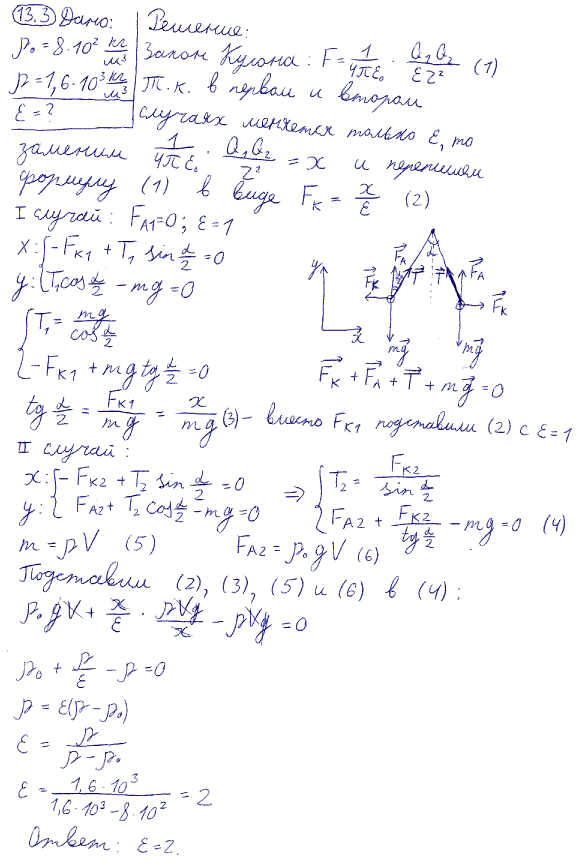 13.3 Дано:
ρ₀ = 8·10² кг/м³
ρ = 1,6·10³ кг/м³
ε = ?
Решение:
Закон Кулона: F = 1/(4πε₀) · Q₁Q₂/(εr²) (1)
Т.к. в первом и втором
случаях меняется только ε, то
заменим 1/(4πε₀) · Q₁Q₂/r² = x и перепишем
формулу (1) в виде F_K = x/ε (2)
I случай: F_A1 = 0; ε = 1
x: { -F_K1 + T₁ sin α/2 = 0
y: { T₁ cos α/2 - mg = 0
{ T₁ = mg/(cos α/2)
-F_K1 + mg tg α/2 = 0
α
y
x
F_A T F_K mg
F_A T F_K mg
F_K + F_A + T + mg = 0
tg α/2 = F_K1/mg = x/mg (3) - вместо F_K1 подставили (2) с ε = 1
II случай:
x: { -F_K2 + T₂ sin α/2 = 0
y: { F_A2 + T₂ cos α/2 - mg = 0
⇒ { T₂ = F_K2/(sin α/2)
F_A2 + F_K2/(tg α/2) - mg = 0 (4)
m = ρV (5) F_A2 = ρ₀gV (6)
Подставим (2), (3), (5) и (6) в (4):
ρ₀gV + x/ε · ρVg/x - ρVg = 0
ρ₀ + ρ/ε - ρ = 0
ρ = ε(ρ - ρ₀)
ε = ρ/(ρ - ρ₀)
ε = 1,6·10³/(1,6·10³ - 8·10²) = 2
Ответ: ε = 2.